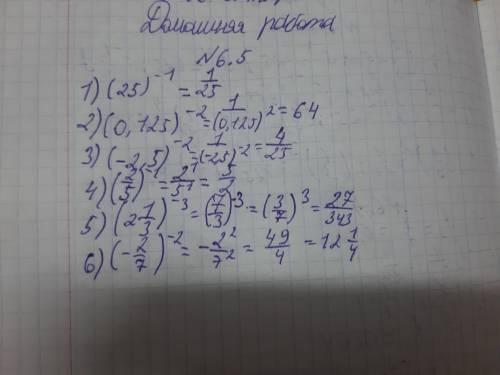 Домашняя работа
№6.5
1) (25)⁻¹ = 1/25
2) (0,125)⁻² = 1/(0,125)² = 64
3) (-2,5)⁻² = 1/(-2,5)⁻² = 4/25
4) (2/5)⁻¹ = 2¹/5¹ = 5/2
5) (2 1/3)⁻³ = (7/3)⁻³ = (3/7)³ = 27/343
6) (-2/7)⁻² = -2²/7² = 49/4 = 12 1/4